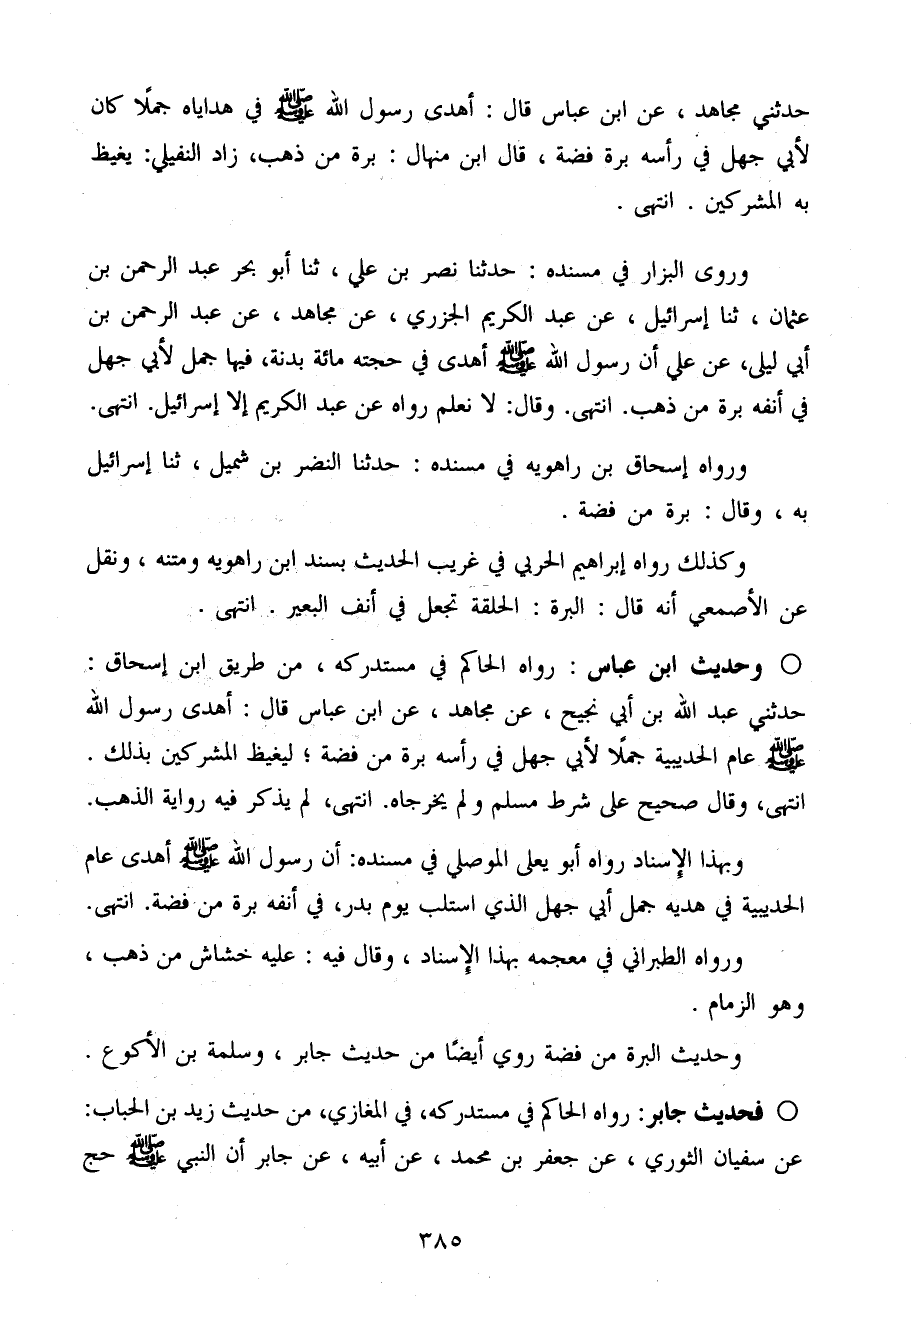 حدثني مجاهد ، عن ابن عباس قال : أهدى رسول الله ﷺ في هداياه جملًا كان
لأبي جهل في رأسه برة فضة ، قال ابن منهال : برة من ذهب، زاد النفيلي: يغيظ
به المشركين . انتهى .
وروى البزار في مسنده : حدثنا نصر بن علي ، ثنا أبو بحر عبد الرحمن بن
عثمان ، ثنا إسرائيل ، عن عبد الكريم الجزري ، عن مجاهد ، عن عبد الرحمن بن
أبي ليلى، عن علي أن رسول الله ﷺ أهدى في حجته مائة بدنة، فيها جمل لأبي جهل
في أنفه برة من ذهب. انتهى. وقال: لا نعلم رواه عن عبد الكريم إلا إسرائيل. انتهى.
ورواه إسحاق بن راهويه في مسنده : حدثنا النضر بن شميل ، ثنا إسرائيل
به ، وقال : برة من فضة .
وكذلك رواه إبراهيم الحربي في غريب الحديث بسند ابن راهويه ومتنه ، ونقل
عن الأصمعي أنه قال : البرة : الحلقة تجعل في أنف البعير . انتهى .
○ وحديث ابن عباس : رواه الحاكم في مستدركه ، من طريق ابن إسحاق :
حدثني عبد الله بن أبي نجيح ، عن مجاهد ، عن ابن عباس قال : أهدى رسول الله
ﷺ عام الحديبية جملًا لأبي جهل في رأسه برة من فضة ؛ ليغيظ المشركين بذلك .
انتهى، وقال صحيح على شرط مسلم ولم يخرجاه. انتهى، لم يذكر فيه رواية الذهب.
وبهذا الإسناد رواه أبو يعلى الموصلي في مسنده: أن رسول الله ﷺ أهدى عام
الحديبية في هديه جمل أبي جهل الذي استلب يوم بدر، في أنفه برة من فضة. انتهى.
ورواه الطبراني في معجمه بهذا الإسناد ، وقال فيه : عليه خشاش من ذهب ،
وهو الزمام .
وحديث البرة من فضة روي أيضًا من حديث جابر ، وسلمة بن الأكوع .
○ فحديث جابر: رواه الحاكم في مستدركه، في المغازي، من حديث زيد بن الحباب:
عن سفيان الثوري ، عن جعفر بن محمد ، عن أبيه ، عن جابر أن النبي ﷺ حج
٣٨٥